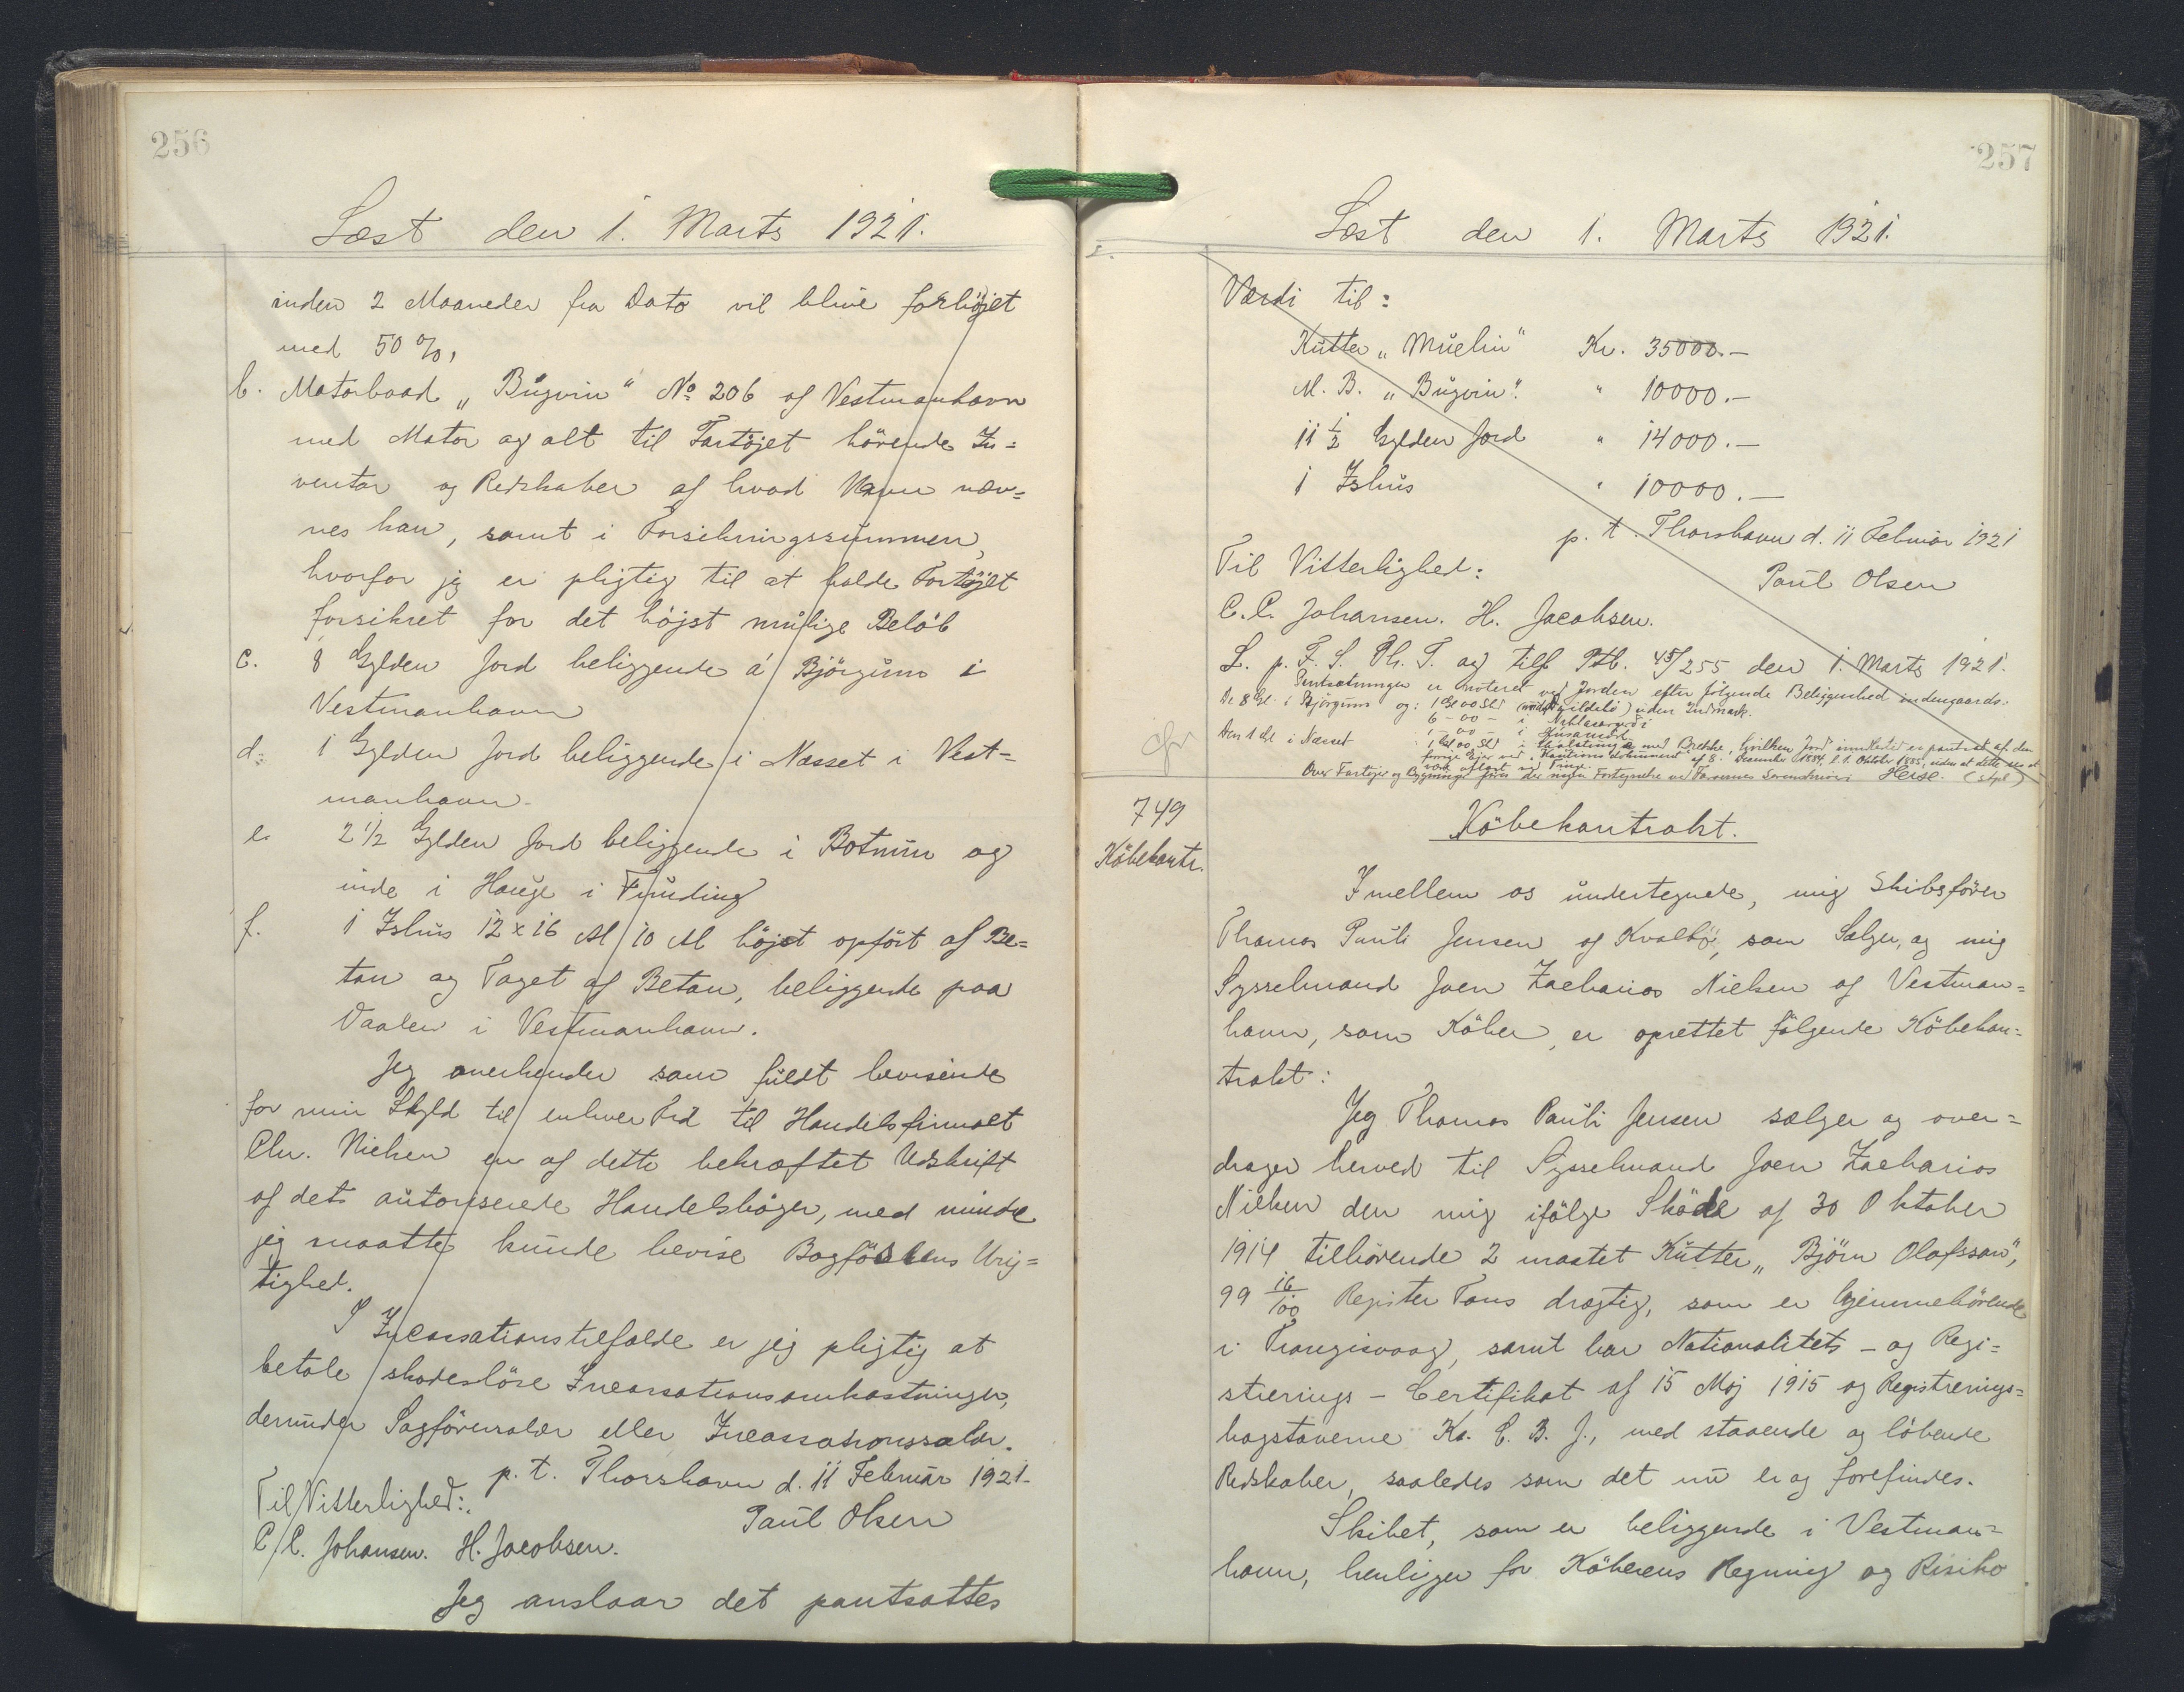 256
Læst den 1. Marts 1921.
inden 2 Maaneder fra Dato vil blive forhöjet
med 50 %,
b. Motorbaad „Bugvin“ № 206 af Vestmanhavn
med Motor og alt til Fartöjet hörende In=
ventar og Redskaber af hvad Navn næv=
nes kan, samt i Forsikringssummen,
hvorfor jeg er pligtig til at holde Fartöjet
forsikret for det höjst mulige Belöb
c. 8 Gylden Jord beliggende á Björgum i
Vestmanhavn
d: 1 Gylden Jord beliggende i Nesset i Vest=
manhavn.
e. 2 1/2 Gylden Jord beliggende i Botnum og
inde i Hauge i Funding
f. 1 Ishus 12 x 16 Al 10 Al höjst opfört af Be=
ton og Taget af Beton, beliggende paa
Vaalen i Vestmanhavn.
Jeg anerkender som fuldt bevisende
for min Skyld til enhver Tid til Handelsfirmaet
Chr. Nielsen en af dette bekræftet Udskrift
af dets autoriserede Handelsböger, med mindre
jeg maatte kunde bevise Bogförelsens Urig=
tighed.
I Incassationstilfælde er jeg pligtig at
betale skadeslöse Incassationsomkostninger,
derunder Sagförersalær eller Incassationssalær.
p. t. Thorshavn d. 11 Februar 1921.
Til Vitterlighed:
Paul Olsen
C. C. Johansen. H. Jacobsen.
Jeg anslaar det pantsattes
257
Læst den 1. Marts 1921.
Værdi til:
Kutter „Muelin“ Kr. 35000.—
M. B. „Bugvin“. " 10000.—
11 1/2 Gylden Jord " 14000.—
1 Ishus " 10000.—
p. t. Thorshavn d. 11 Februar 1921
Til Vitterlighed:
Paul Olsen
C. C. Johansen. H. Jacobsen.
L. p. F. S. Th. T. og tilf Ptb. 45/255 den 1. Marts 1921.
Pantsætningen er noteret ved Jorden efter fölgende Beliggenhed indengaards:
De 8 Gl. i Björgum og: 1 Gl 00 Sk. uden Indmark.
6 - 00 - i
Den 1 Gl i Nesset 1 Gl 00 Sk i med Brekke, hvilken Jord er pantsat af den
forrige Ejer ved af 8. December 1884, l. 1. Oktober 1885, uden at dette ses at
være aflyst
Over Fartöjer og Bygninger föres der ingen Fortegnelse ved Færöernes Sorenskriveri Heise. (stpl)
749
Köbekontr.
Köbekontrakt.
Imellem os undertegnede, mig Skibsförer
Thomas Pauli Jensen af Kvalbö, som Sælger, og mig
Sysselmand Joen Zacharias Nielsen af Vestman=
havn, som Köber, er oprettet fölgende Köbekon=
trakt:
Jeg Thomas Pauli Jensen sælger og over=
drager herved til Sysselmand Joen Zacharias
Nielsen den mig ifölge Sköde af 30 Oktober
1914 tilhörende 2 mastet Kutter „Björn Olafsson“,
99 16/100 Register Tons drægtig, som er hjemmehörende
i Trangisvaag, samt har Nationalitets- og Regi=
strerings-Certifikat af 15 Maj 1915 og Registrerings=
bogstaverne Ks. C. B. J., med staaende og löbende
Redskaber, saaledes som det nu er og forefindes.
Skibet, som er beliggende i Vestman=
havn, henligger for Köberens Regning og Risiko